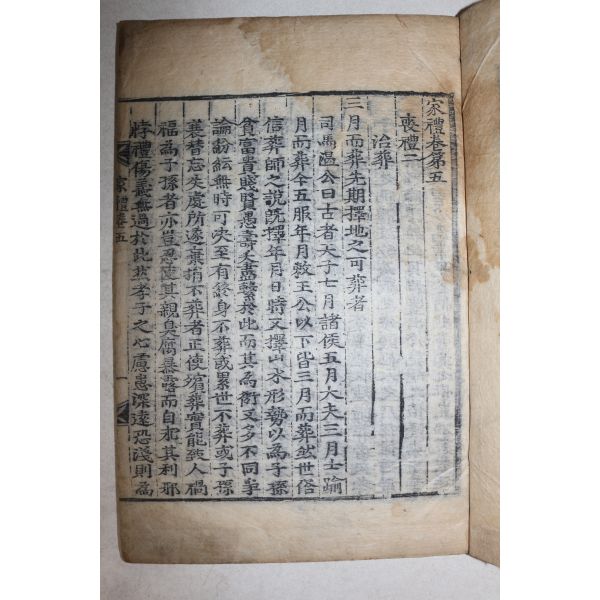 家禮卷第五
喪禮二
治葬
三月而葬先期擇地之可葬者
司馬溫公曰古者天子七月諸侯五月大夫三月士踰
月而葬今五服年月敕王公以下皆三月而葬然世俗
信葬師之說旣擇年月日時又擇山水形勢以爲子孫
貧富貴賤賢愚壽夭盡繫於此而其爲術又多不同爭
論紛紜無時可決至有終身不葬或累世不葬或子孫
衰替忘失處所遂棄捐不葬者正使殯葬實能致人禍
福爲子孫者亦豈忍使其親臭腐暴露而自求其利邪
悖禮傷義無過於此然孝子之心慮患深遠恐淺則爲
家禮卷五
一